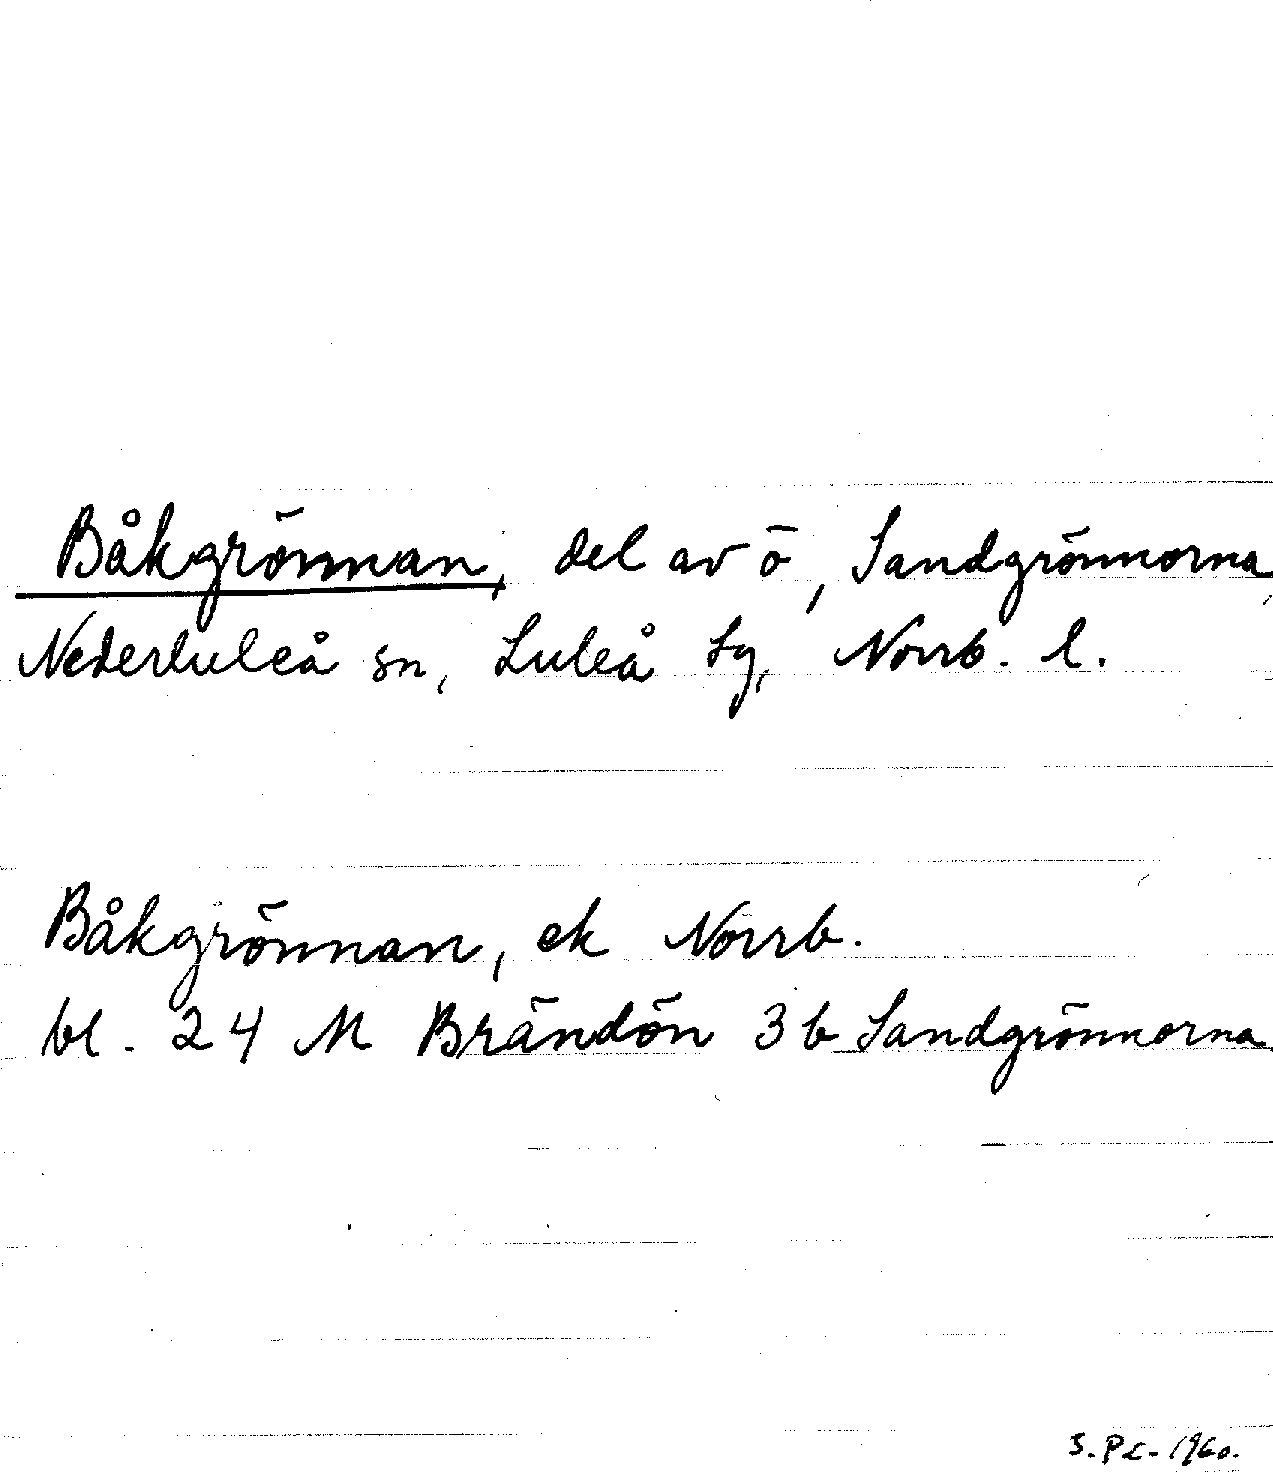 Båkgrönnan, del av ö, Sandgrönnorna
Nederluleå sn, Luleå tg, Norrb. l.
Båkgrönnan, ek Norrb.
bl. 24 M Brändön 3b Sandgrönnorna
1960.